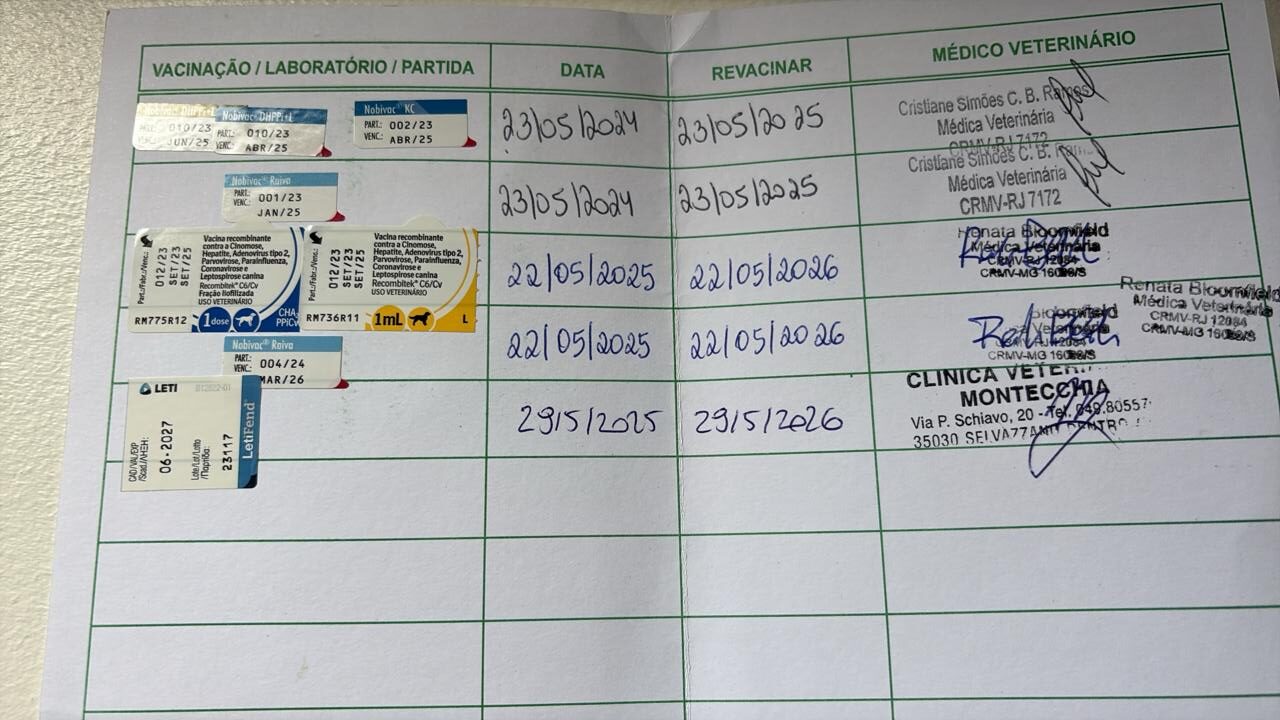 VACINAÇÃO / LABORATÓRIO / PARTIDA
DATA
REVACINAR
MÉDICO VETERINÁRIO
Nobivac® DHPPi+L
010/23
JUN/25
Nobivac® DHPPi+L
PART.: 010/23
VENC.: ABR/25
Nobivac® KC
PART.: 002/23
VENC.: ABR/25
23/05/2024
23/05/2025
Cristiane Simões C. B. Ramos
Médica Veterinária
CRMV-RJ 7172
Nobivac® Raiva
PART.: 001/23
VENC.: JAN/25
23/05/2024
23/05/2025
Cristiane Simões C. B.
Médica Veterinária
CRMV-RJ 7172
Part./Fabr./Venc.:
012/23
SET/23
SET/25
Vacina recombinante
contra a Cinomose,
Hepatite, Adenovirus tipo 2,
Parvovirose, Parainfluenza,
Coronavirose e
Leptospirose canina
Recombitek® C6/Cv
Fração liofilizada
USO VETERINÁRIO
RM775R12
1 dose
CHA2
PPiCv
Part./Fabr./Venc.:
012/23
SET/23
SET/25
Vacina recombinante
contra a Cinomose,
Hepatite, Adenovirus tipo 2,
Parvovirose, Parainfluenza,
Coronavirose e
Leptospirose canina
Recombitek® C6/Cv
USO VETERINÁRIO
RM736R11
1mL
L
22/05/2025
22/05/2026
Renata Bloomfield
Médica Veterinária
CRMV-RJ 12084
CRMV-MG
Nobivac® Raiva
PART.: 004/24
VENC.: MAR/26
22/05/2025
22/05/2026
Veterinária
CRMV-MG
Renata Bloomfield
Médica Veterinária
CRMV-RJ 12084
CRMV-MG
LETI
B12822-01
CAD/VAL/EXP
/Scad./ΛΗΞΗ:
06-2027
Lote/Lot/Lotto
/Παρτίδα:
23117
LetiFend®
29/5/2025
29/5/2026
CLINICA
MONTECCHIA
Via P. Schiavo, 20 - Tel. 049.80557
35030 SELVAZZANO DENTRO